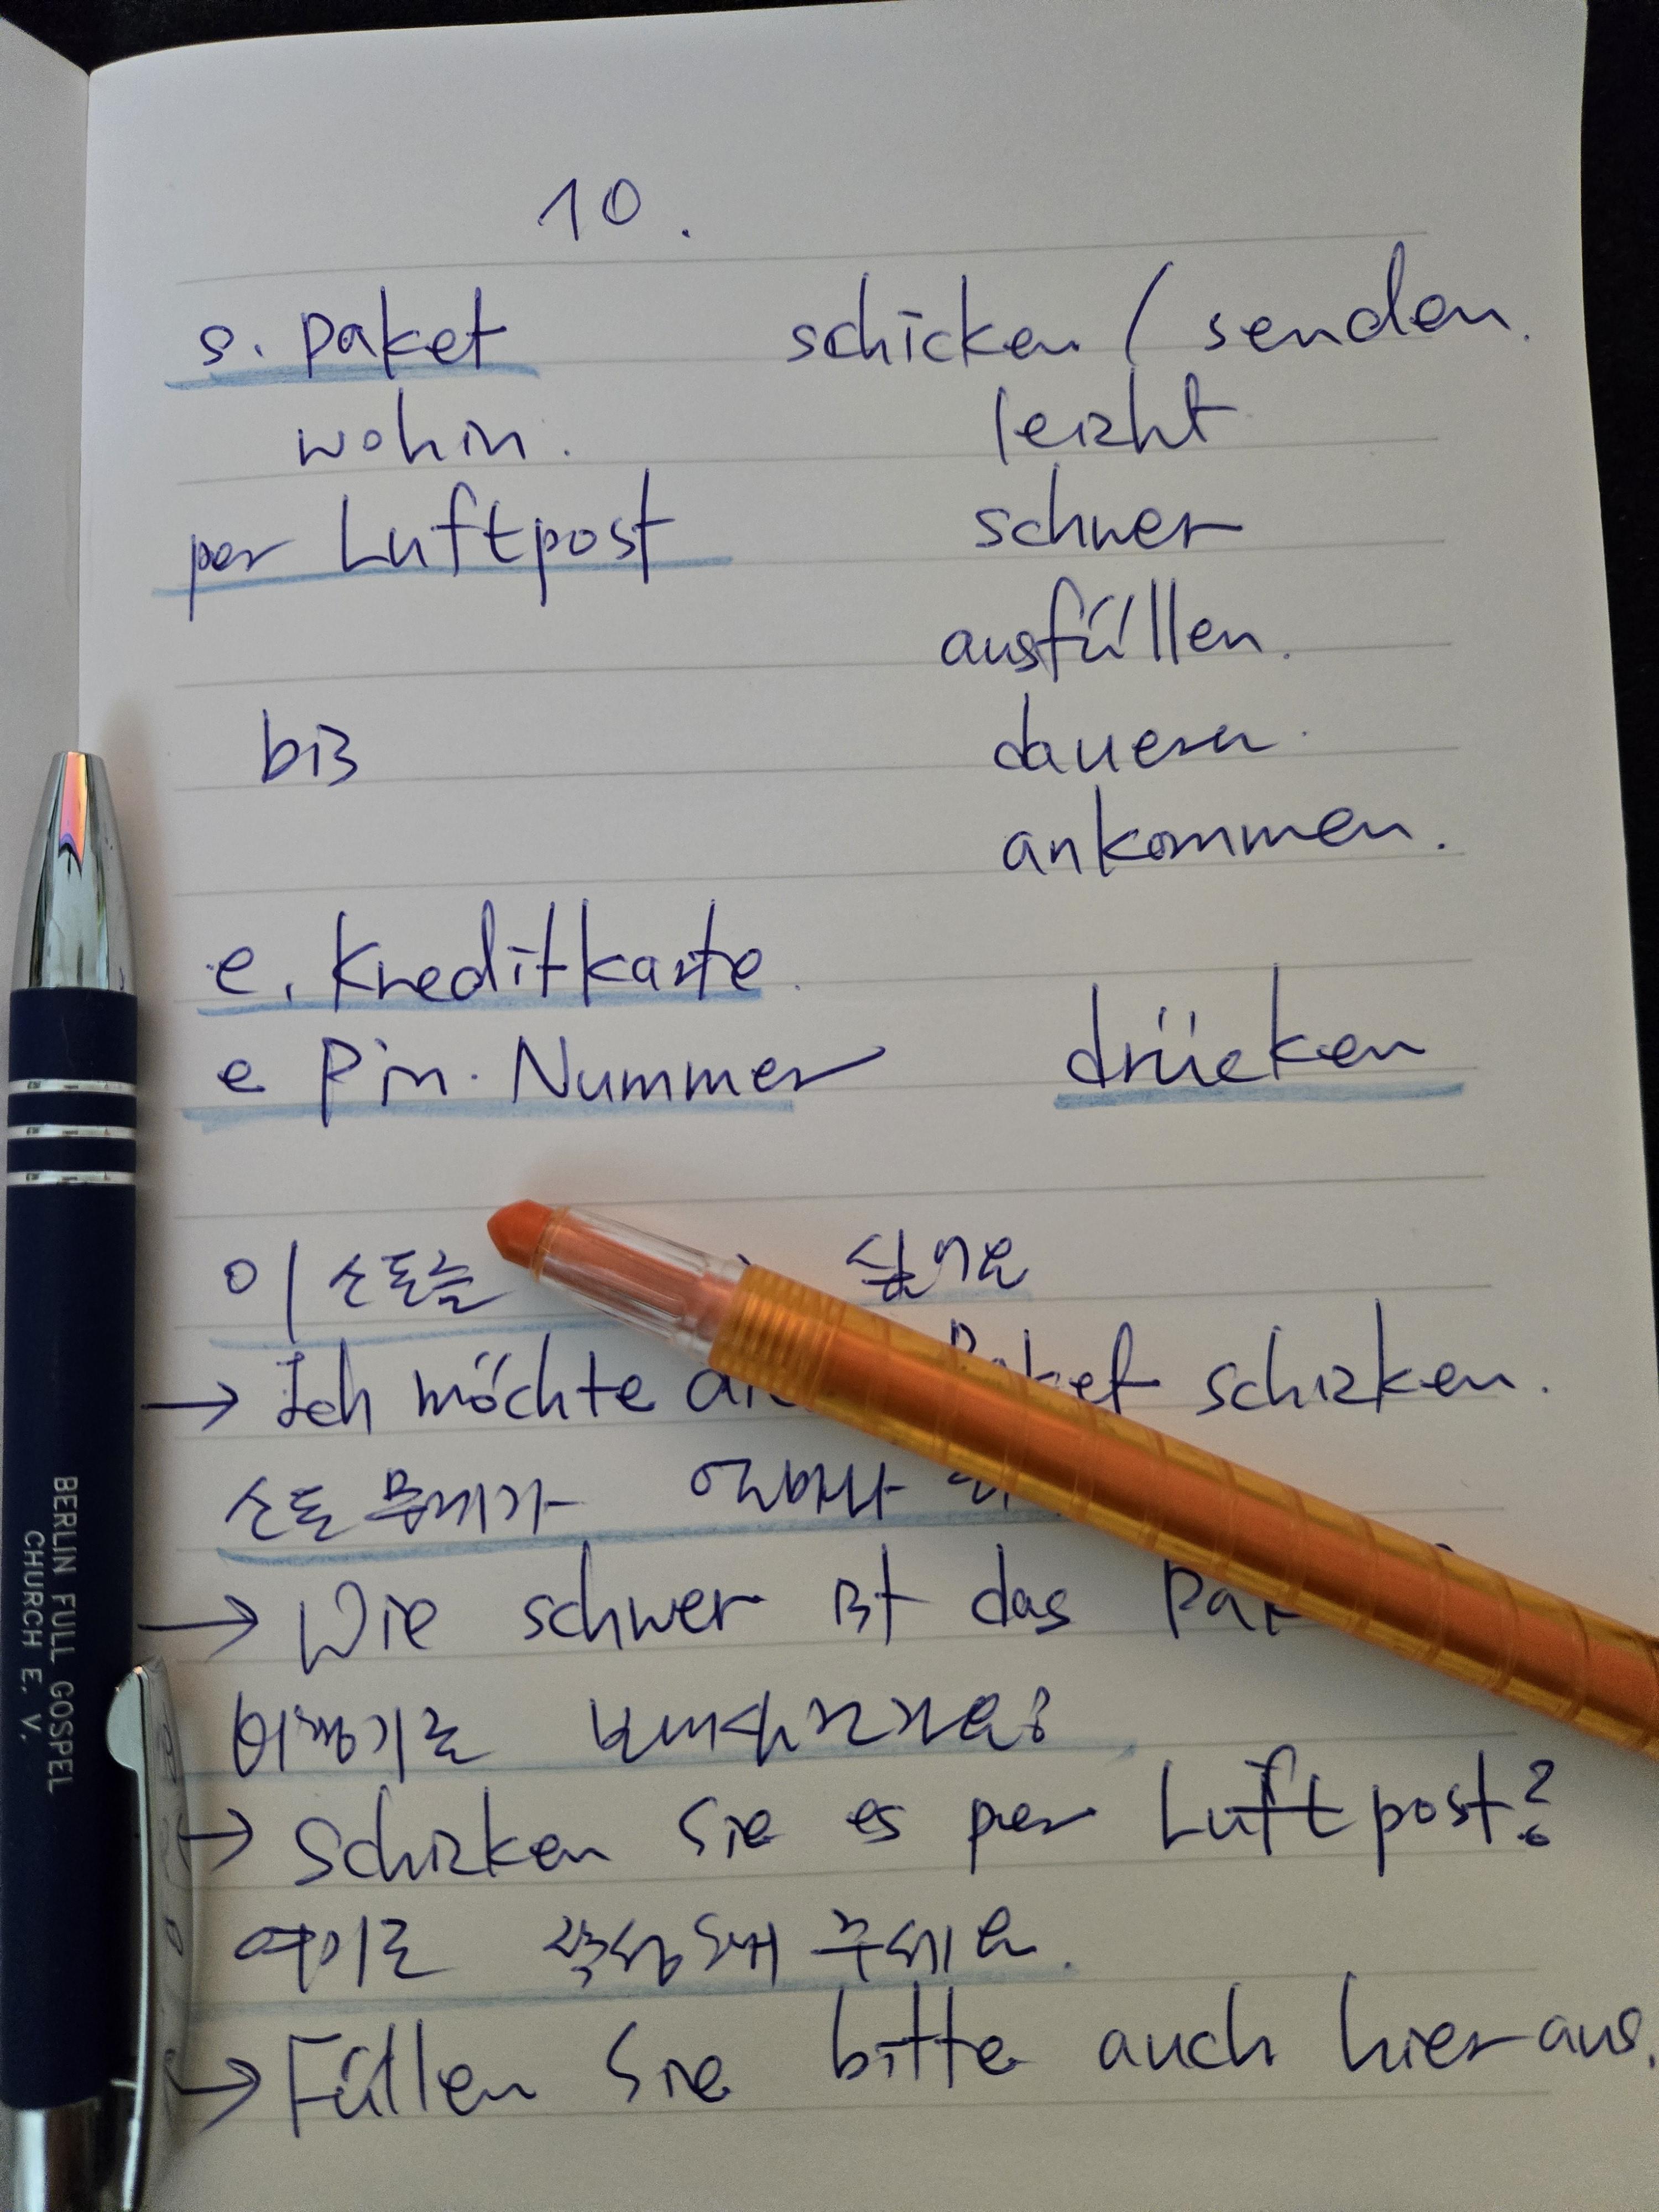 10.
s. Paket schicken / senden.
wohin. leicht
per Luftpost schwer
ausfüllen.
bis dauern.
ankommen.
e. Kreditkarte.
e Pin. Nummer drücken
이 소포를 싶어요
→ Ich möchte Paket schicken.
소포 무게가 얼마나
→ Wie schwer ist das
비행기로 보내실건가요?
→ Schicken Sie es per Luftpost?
여기로 작성해 주세요.
→ Füllen Sie bitte auch hier aus.
BERLIN FULL GOSPEL
CHURCH E. V.